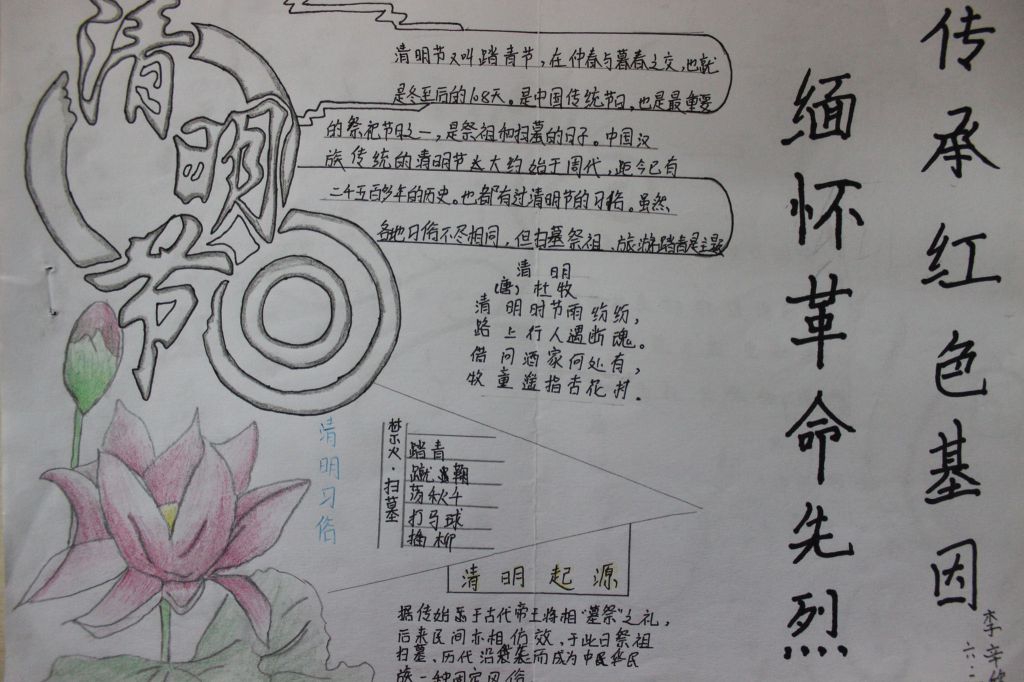 清明节
清明节又叫踏青节，在仲春与暮春之交，也就
是冬至后的108天。是中国传统节日，也是最重要
的祭祀节日之一，是祭祖和扫墓的日子。中国汉
族传统的清明节大约始于周代，距今已有
二千五百多年的历史。也都有过清明节的习俗。虽然
各地习俗不尽相同，但扫墓祭祖、旅游踏青是主题
清明
（唐）杜牧
清明时节雨纷纷，
路上行人遇断魂。
借问酒家何处有，
牧童遥指杏花村．
清明习俗
禁火·扫墓
踏青
蹴鞠
荡秋千
打马球
插柳
清明起源
据传始于古代帝王将相“墓祭”之礼，
后来民间亦相仿效、于此日祭祖
扫墓、历代沿袭而成为中民华民
族一种固定风俗
传承红色基因
缅怀革命先烈
李辛
六.